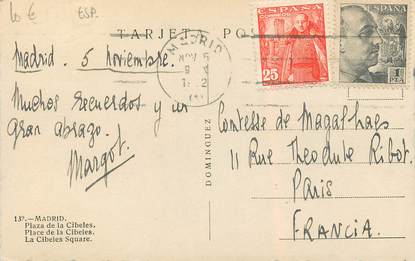 10 € ESP.
TARJETA POS
MADRID
ESPAÑA
CORREOS
25
ESPAÑA
1
PTA
Madrid. 5 Noviembre.
Muchos recuerdos y un
gran abrazo.
Margot.
DOMINGUEZ
Comtesse de Magalhaes
11 Rue Théodule Ribot.
Paris
FRANCIA.
137.—MADRID.
Plaza de la Cibeles.
Place de la Cibeles.
La Cibeles Square.